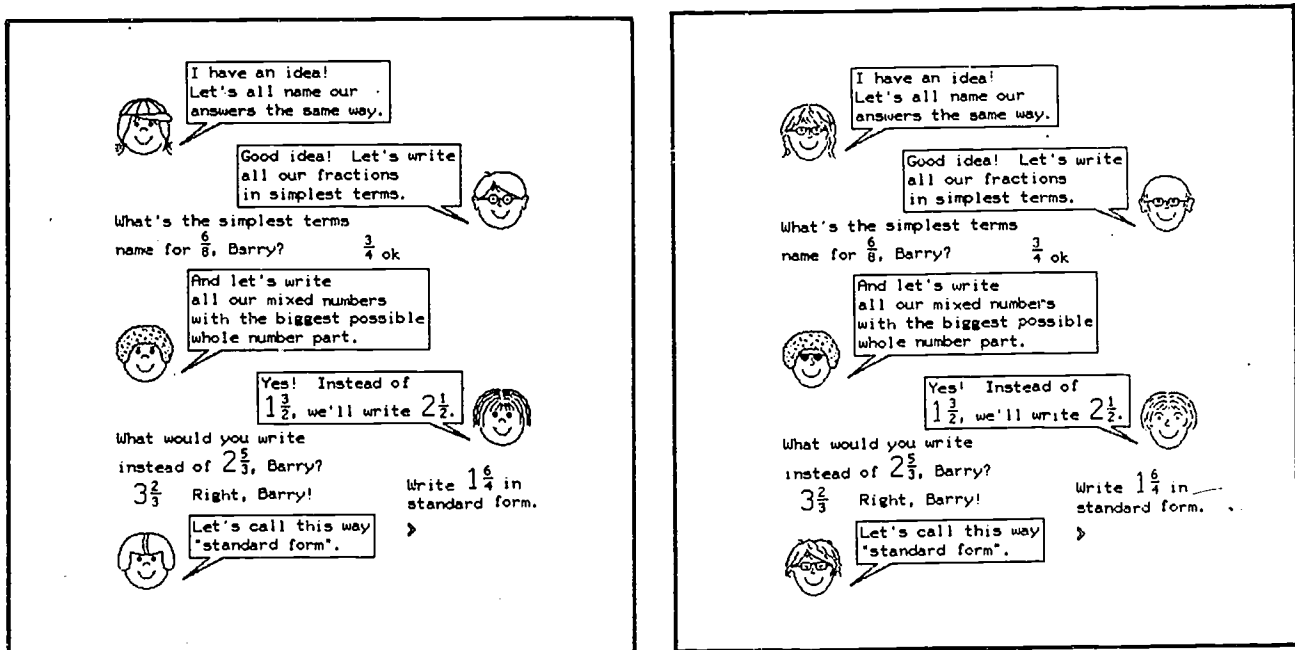 I have an idea!
Let's all name our
answers the same way.
Good idea! Let's write
all our fractions
in simplest terms.
What's the simplest terms
name for 6/8, Barry? 3/4 ok
And let's write
all our mixed numbers
with the biggest possible
whole number part.
Yes! Instead of
1 3/2, we'll write 2 1/2.
What would you write
instead of 2 5/3, Barry?
3 2/3 Right, Barry!
Write 1 6/4 in
standard form.
>
Let's call this way
"standard form".
I have an idea!
Let's all name our
answers the same way.
Good idea! Let's write
all our fractions
in simplest terms.
What's the simplest terms
name for 6/8, Barry? 3/4 ok
And let's write
all our mixed numbers
with the biggest possible
whole number part.
Yes! Instead of
1 3/2, we'll write 2 1/2.
What would you write
instead of 2 5/3, Barry?
3 2/3 Right, Barry!
Write 1 6/4 in
standard form.
>
Let's call this way
"standard form".